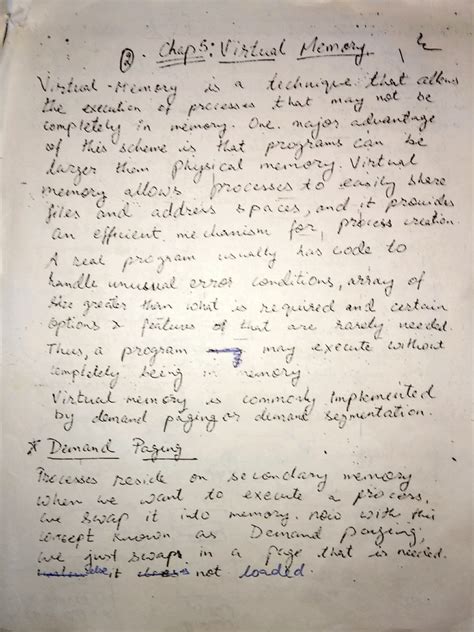 ② Chap 5: Virtual Memory
Virtual-Memory is a technique that allows
the execution of processes that may not be
completely in memory. One major advantage
of this scheme is that programs can be
larger them physical memory. Virtual
memory allows processes to easily share
files and address spaces, and it provides
an efficient mechanism for process creation.
A real program usually has code to
handle unusual error conditions, array of
size greater then what is required and certain
options & features of that are rarely needed.
Thus, a program may execute without
completely being in memory.
Virtual memory is commonly implemented
by demand paging or demand segmentation.
* Demand Paging
Processes reside on secondary memory
when we want to execute a process,
we swap it into memory. now with this
concept known as Demand paging,
we just swaps in a page that is needed.
else, it is not loaded.